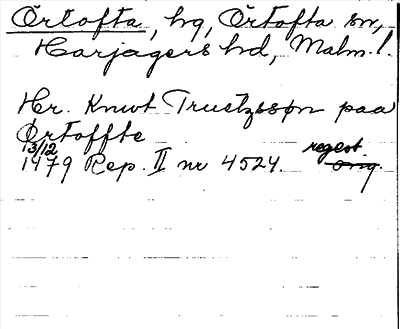 Örtofta, hg, Örtofta sn,
Harjagers hd, Malm. l.
Hr. Knwt Truetzssøn paa
Ørtoffte
13/12
1479 Rep. II nr 4524. regest.
orig.